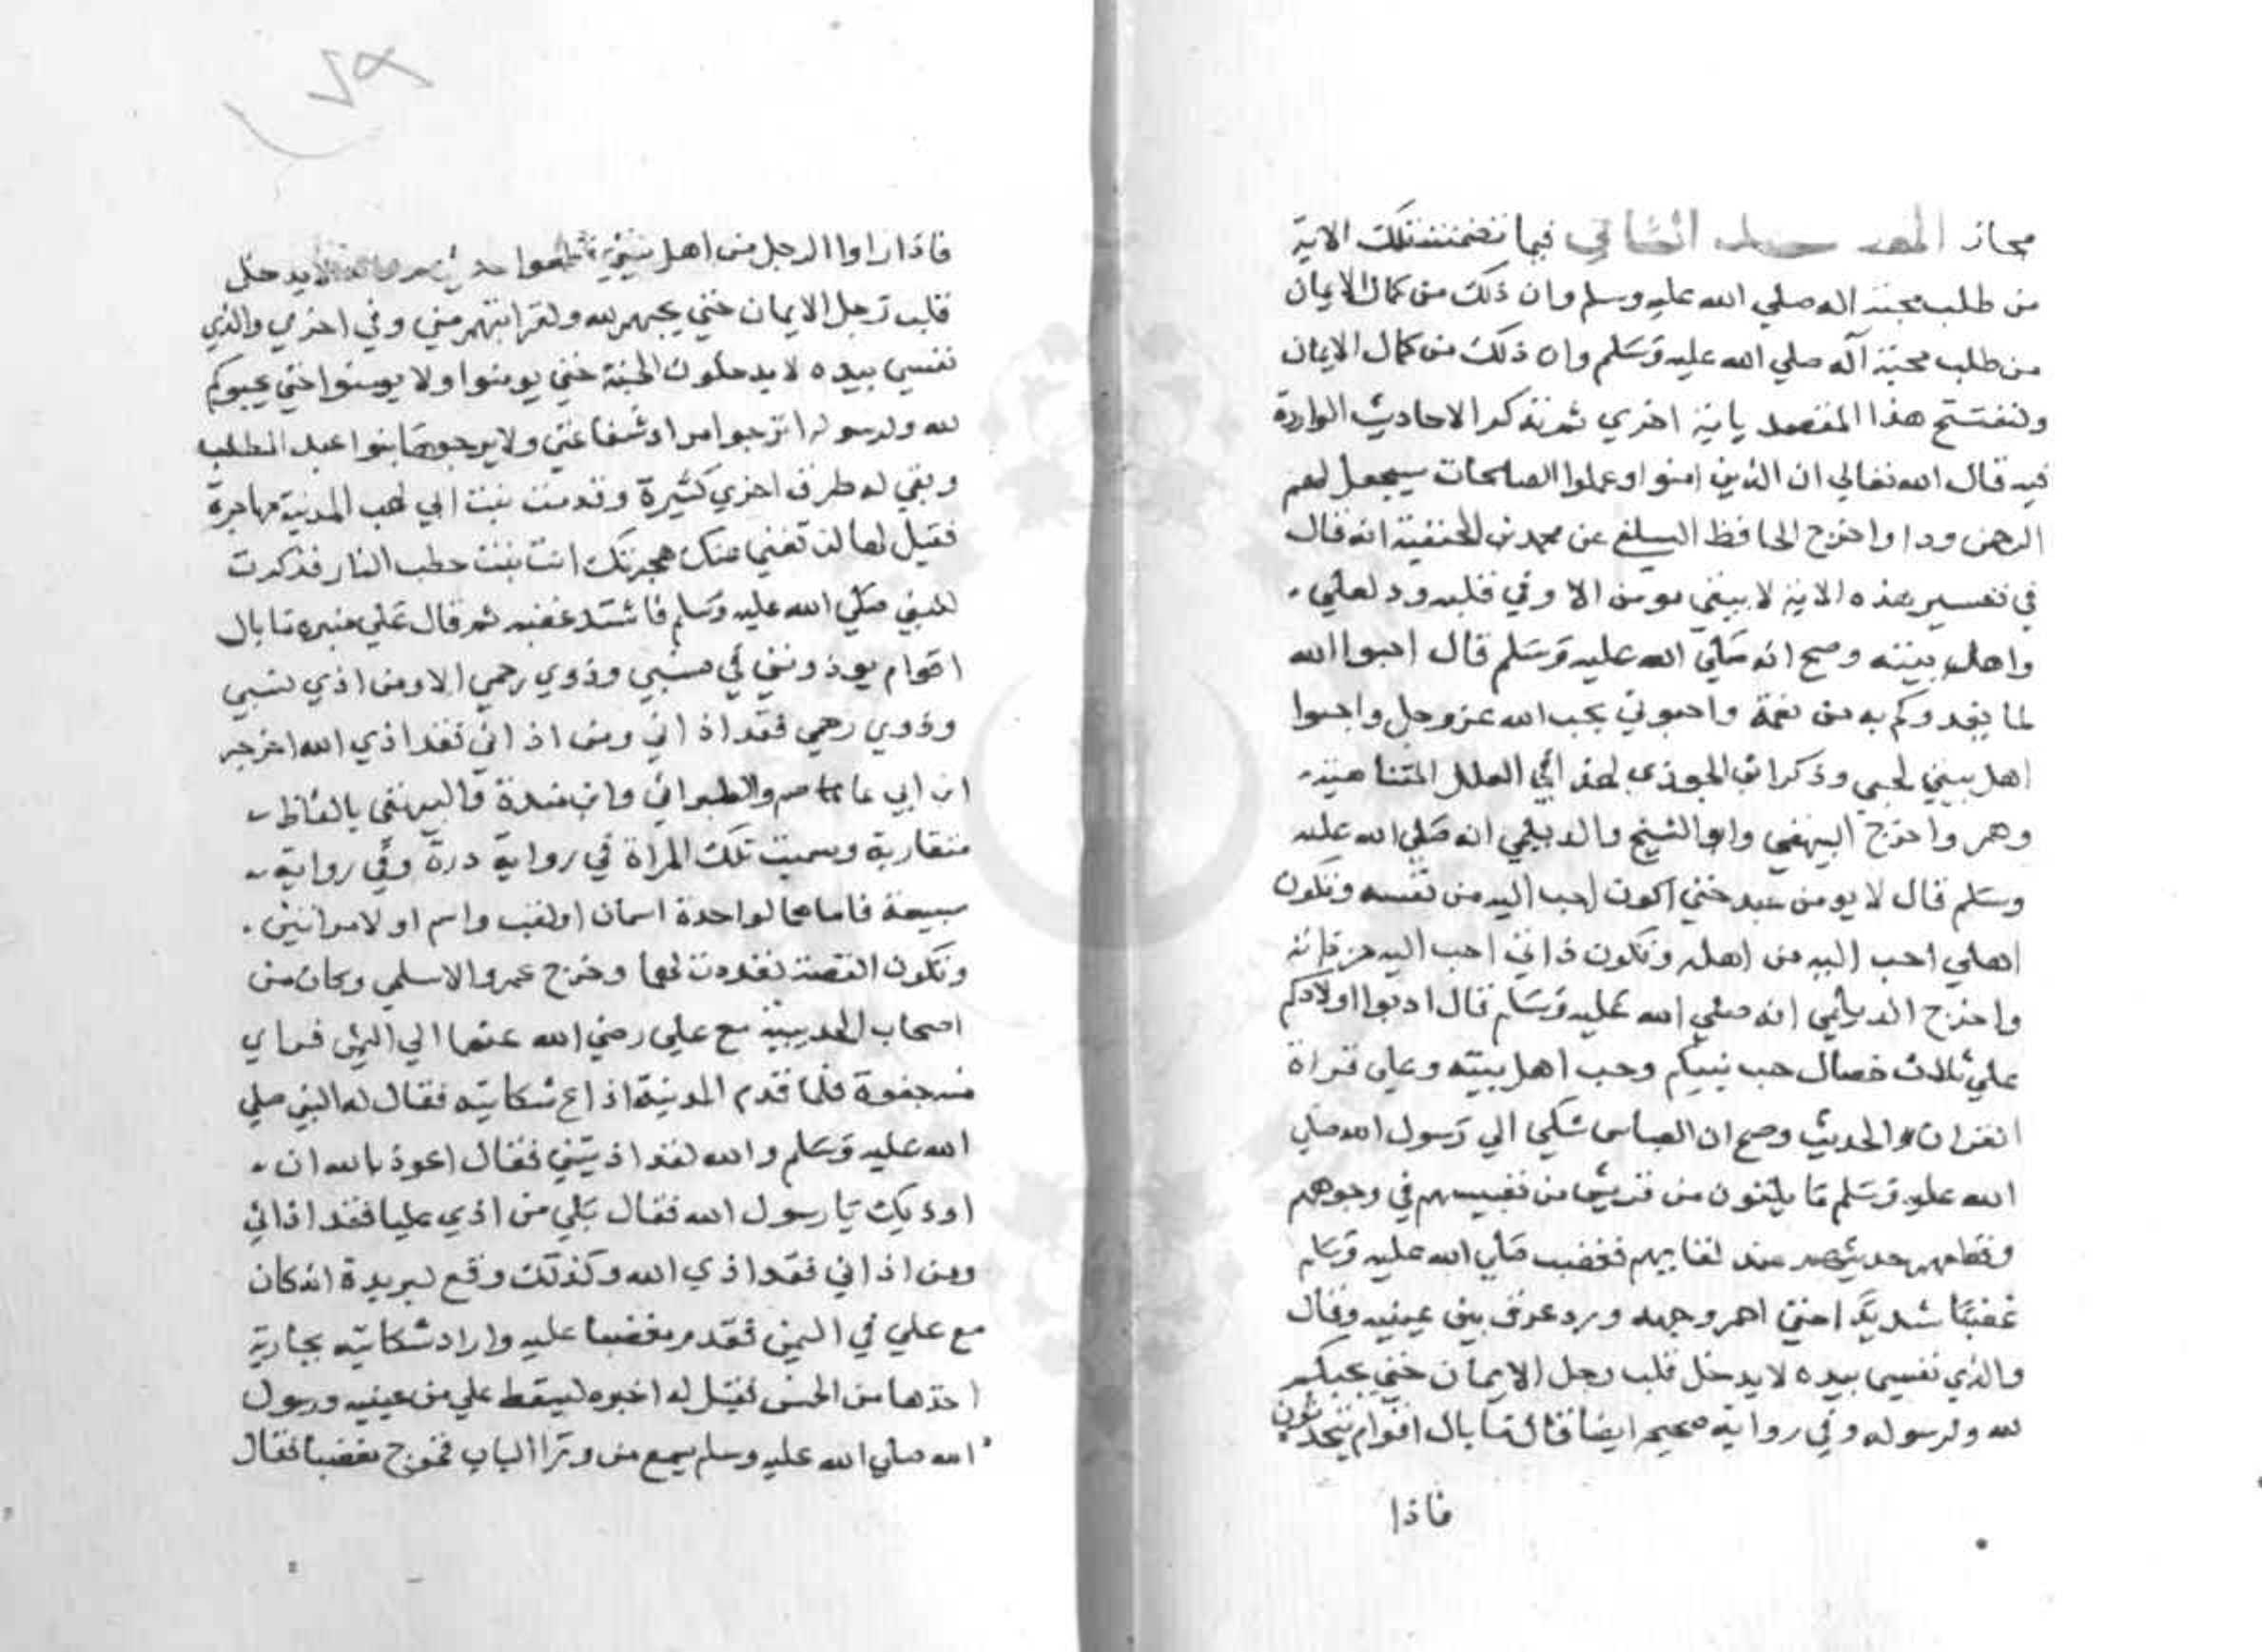 مجاز المقصد الثاني فيما تضمنته تلك الاية
من طلب محبة اله صلي الله عليه وسلم وان ذلك من كمال الايمان
من طلب محبة آله صلي الله عليه وسلم وان ذلك من كمال الايمان
ولنفتتح هذا المقصد باية اخري ثم نذكر الاحاديث الواردة
فيه قال الله تعالي ان الذين امنوا وعملوا الصالحات سيجعل لهم
الرحمن ودا واخرج الحافظ السلفي عن محمد بن الحنفية انه قال
في تفسير هذه الاية لا يبقي مومن الا وفي قلبه ود لعلي
واهل بيته وصح انه صلي الله عليه وسلم قال احبوا الله
لما يغدوكم به من نعمة واحبوني بحب الله عز وجل واحبوا
اهل بيتي لحبي وذكر ابن الجوزي لهذا في العلل المتناهية
وهم واخرج البيهقي وابو الشيخ والديلمي انه صلي الله عليه
وسلم قال لا يومن عبد حتي اكون احب اليه من نفسه وتكون
اهلي احب اليه من اهله وتكون ذاتي احب اليه من ذاته
واخرج الديلمي انه صلي الله عليه وسلم قال ادبوا اولادكم
علي ثلاث خصال حب نبيكم وحب اهل بيته وعلي قراة
القران والحديث وصح ان العباس شكي الي رسول الله صلي
الله عليه وسلم ما يلقون من قريش من تعبيسهم في وجوههم
وقطعهم حديثهم عند لقايهم فغضب صلي الله عليه وسلم
غضبا شديدا حتي احمر وجهه ودر عرق بين عينيه وقال
والذي نفسي بيده لا يدخل قلب رجل الايمان حتي يحبكم
لله ولرسوله وفي رواية صحيحه ايضا قال ما بال اقوام يتحدثون
فاذا
فاذا راوا الرجل من اهل بيتي قطعوا حديثهم لا يدخل
قلب رجل الايمان حتي يحبهم لله ولقرابتهم مني وفي اخري والذي
نفسي بيده لا يدخلون الجنة حتي يومنوا ولا يومنوا حتي يحبوكم
لله ولرسوله اترجوا مراد شفاعتي ولا يرجوها بنوا عبد المطلب
وبقي له طرق اخري كثيرة وقدمت بنت ابي لهب المدينة مهاجرة
فقيل لها لن تغني عنك هجرتك انت بنت حطب النار فذكرت
للنبي صلي الله عليه وسلم فاشتد غضبه ثم قال علي منبره ما بال
اقوام يوذونني في نسبي وذوي رحمي الا ومن اذي نسبي
وذوي رحمي فقد اذاني ومن اذاني فقد اذي الله اخرجه
ابن ابي عاصم والطبراني وابن مندة والبيهقي بالفاظ
متقاربة وسميت تلك المراة في رواية درة وفي رواية
سبيعة فاما هما لواحدة اسمان او لقب واسم او لامراتين
وتكون القصة تعددت لهما وخرج عمرو الاسلمي وكان من
اصحاب الحديبية مع علي رضي الله عنهما الي اليمن فراي
منه جفوة فلما قدم المدينة اذاع شكايته فقال له النبي صلي
الله عليه وسلم والله لقد اذيتني فقال اعوذ بالله ان
اوذيك يا رسول الله فقال بلي من اذي عليا فقد اذاني
ومن اذاني فقد اذي الله وكذلك وقع لبريدة انه كان
مع علي في اليمن فقدم مغضبا عليه واراد شكايته بجارية
اخذها من الخمس فقيل له اخبره ليسقط علي من عينيه ورسول
الله صلي الله عليه وسلم يسمع من ورا الباب فخرج مغضبا فقال